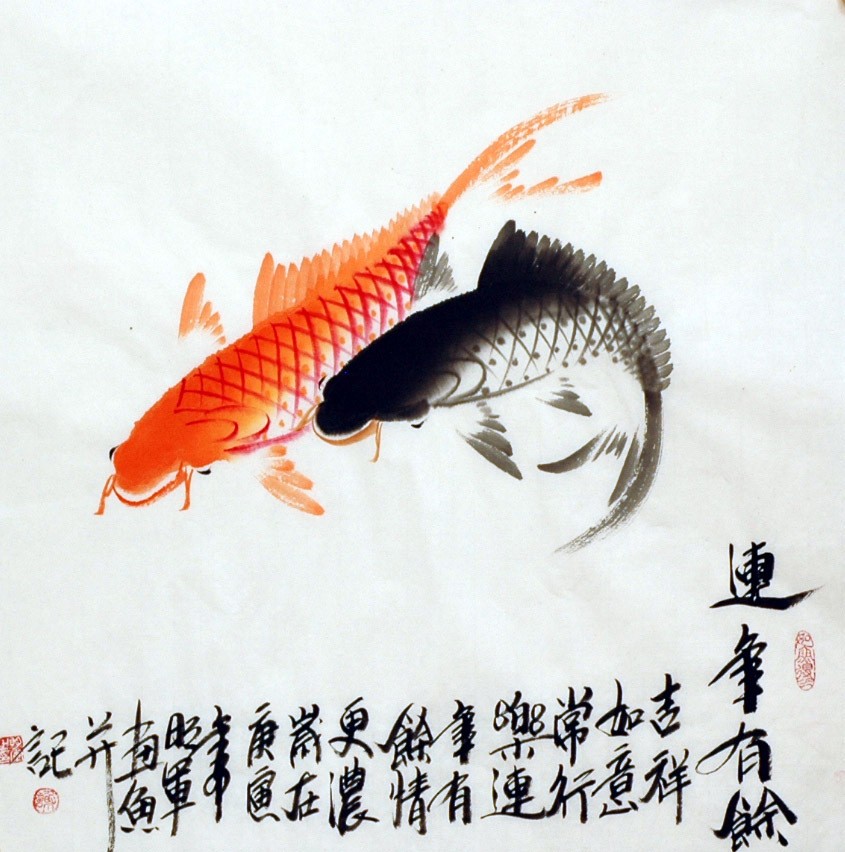 連年有餘
吉祥
如意
常行
樂連
年有
餘情
更濃
歲在
庚寅
年
昭軍
畫魚
并
記